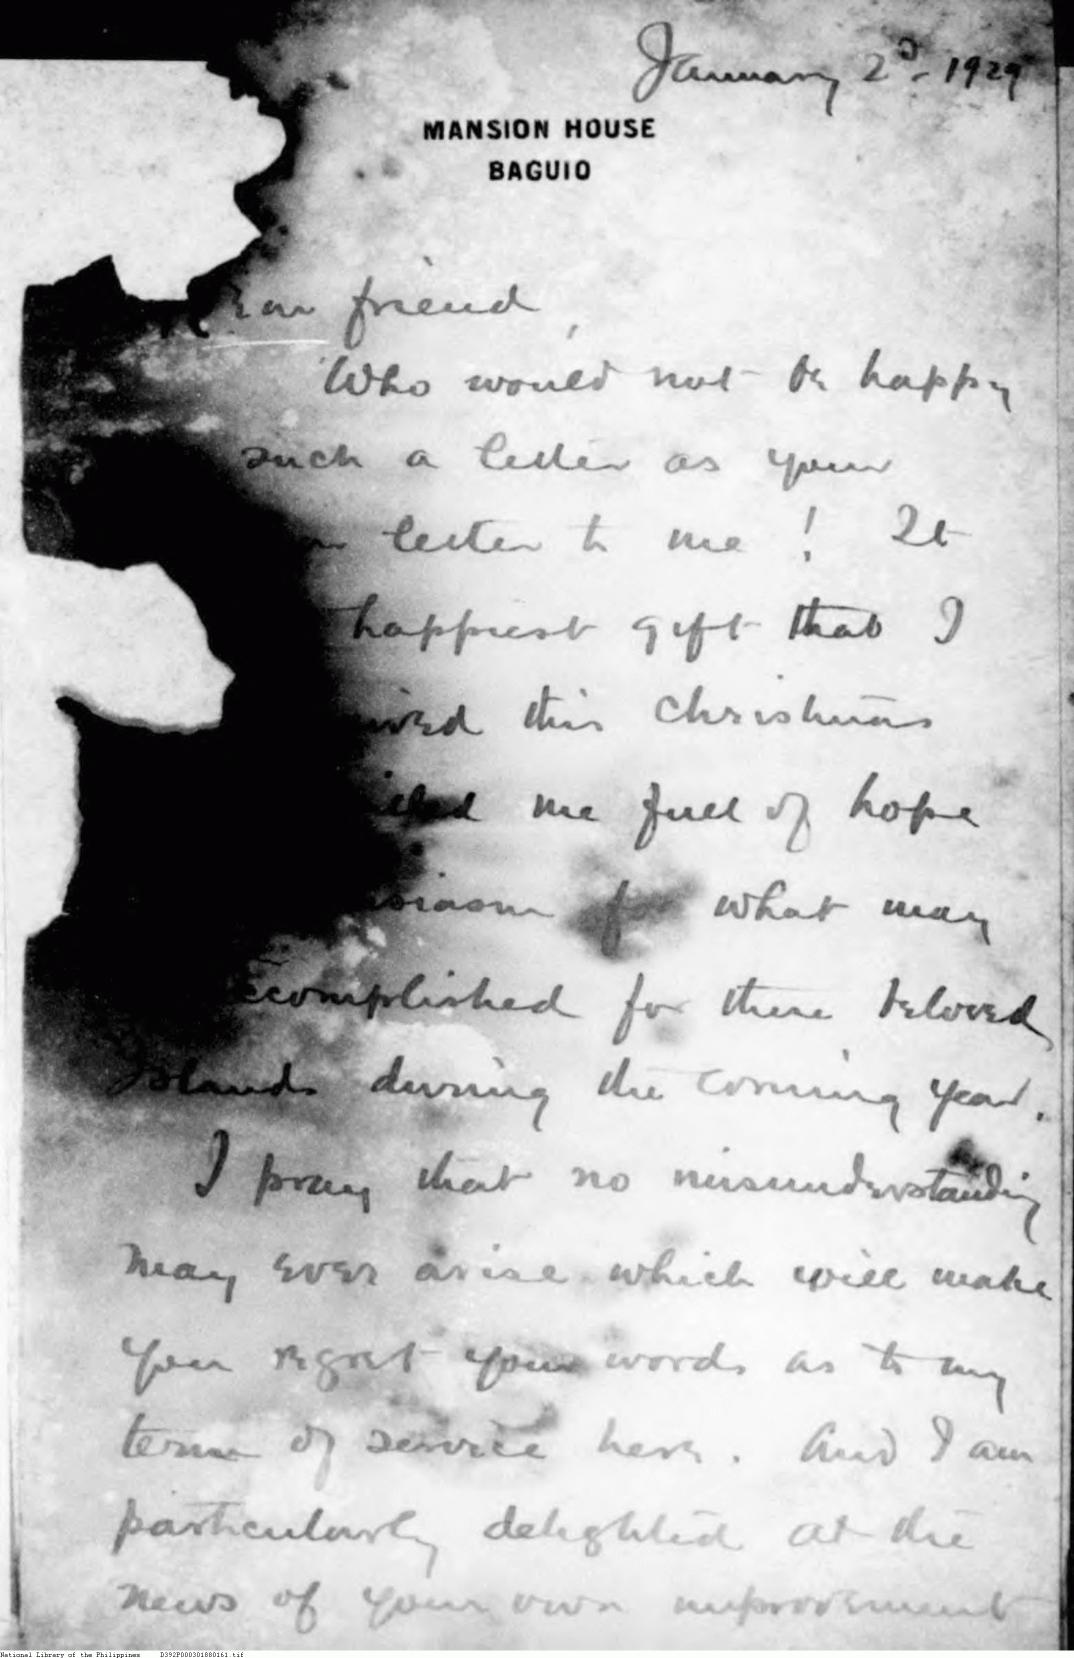 January 2d. 1929
MANSION HOUSE
BAGUIO
friend,
Who would not be happy
such a letter as your
letter to me! It
happiest gift that I
this Christmas
me full of hope
for what may
accomplished for these beloved
Islands during the coming year.
I pray that no misunderstanding
may ever arise which will make
you regret your words as to my
term of service here. And I am
particularly delighted at the
news of your own improvement
National Library of the Philippines D392P000301880161.tif